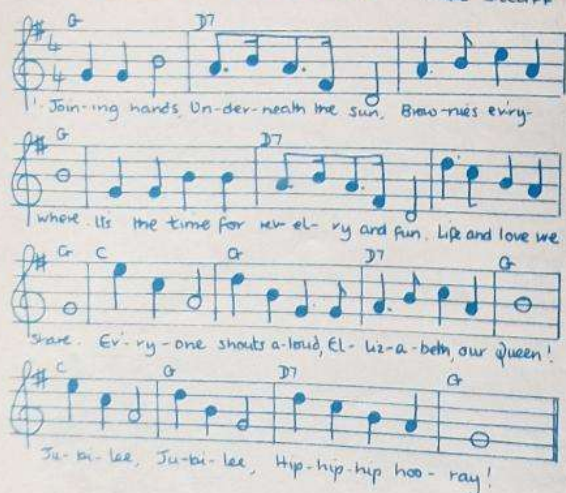 G D7
4
4
1. Join-ing hands, Un-der-neath the sun, Brow-nies ev'ry-
G D7
where. It's the time for rev-el-ry and fun. Life and love we
G C G D7 G
share. Ev'-ry-one shouts a-loud, El-iz-a-beth, our Queen!
C G D7 G
Ju-bi-lee, Ju-bi-lee, Hip-hip-hip hoo-ray!